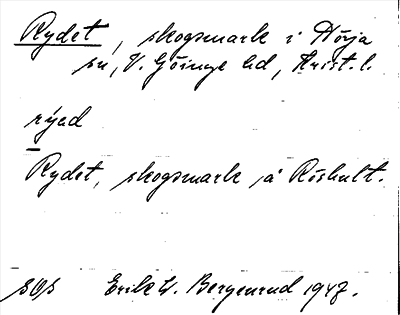 Rydet, skogsmark i Nörja
sn, V. Göinge hd, Krist. l.
rýed
Rydet, skogsmark på Röshult.
SOS Erik W. Bergenrud 1947.